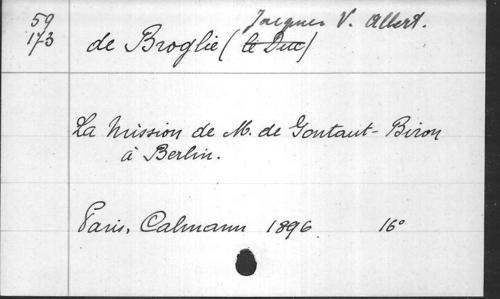 59
173
Jacques V. Albert.
de Broglie (le Duc)
La Mission de M. de Gontaut-Biron
à Berlin.
Paris, Calmann 1896 16°